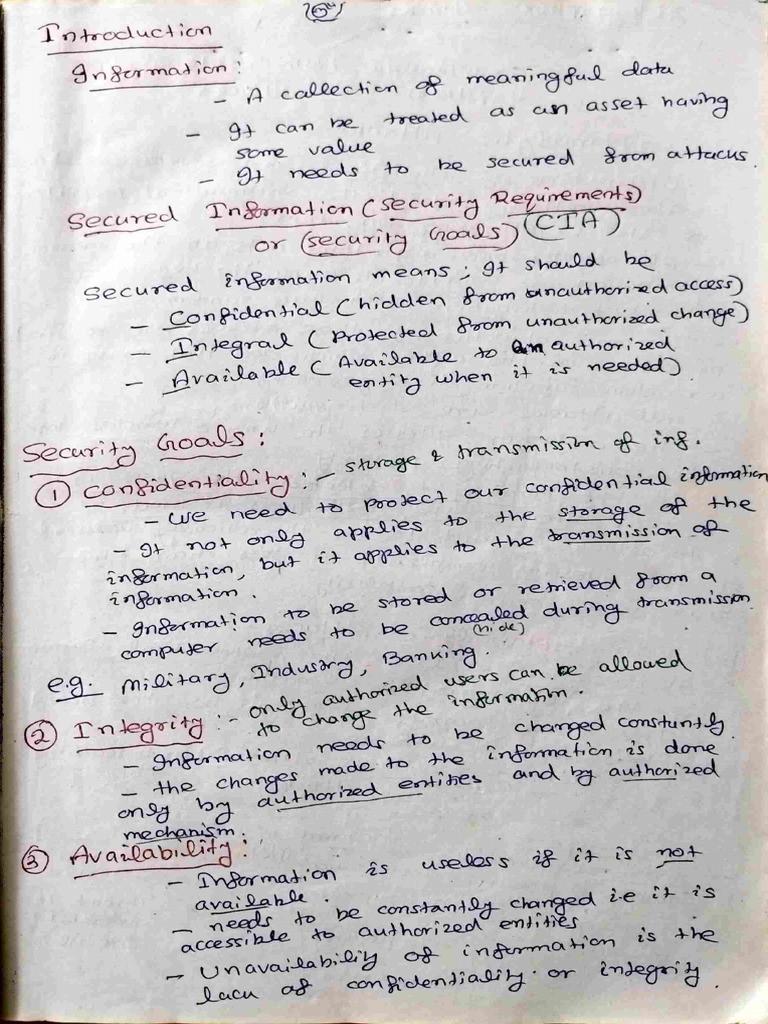 Introduction
Information:
- A collection of meaningful data
- It can be treated as an asset having
some value
- It needs to be secured from attacks.
Secured Information (Security Requirements)
or (Security Goals) (CIA)
Secured information means; It should be
- Confidential (hidden from unauthorized access)
- Integral (Protected from unauthorized change)
- Available (Available to an authorized
entity when it is needed)
Security Goals:
① Confidentiality :- storage & transmission of inf.
- we need to protect our confidential information
- It not only applies to the storage of the
information, but it applies to the transmission of
information.
- Information to be stored or retrieved from a
computer needs to be concealed during transmission
(hide)
e.g. Military, Industry, Banking.
② Integrity :- only authorized users can be allowed
to change the information.
- Information needs to be changed constantly.
- the changes made to the information is done
only by authorized entities and by authorized
mechanism.
③ Availability:
- Information is useless if it is not
available.
- needs to be constantly changed i.e it is
accessible to authorized entities
- Unavailability of information is the
lack of confidentiality. or integrity